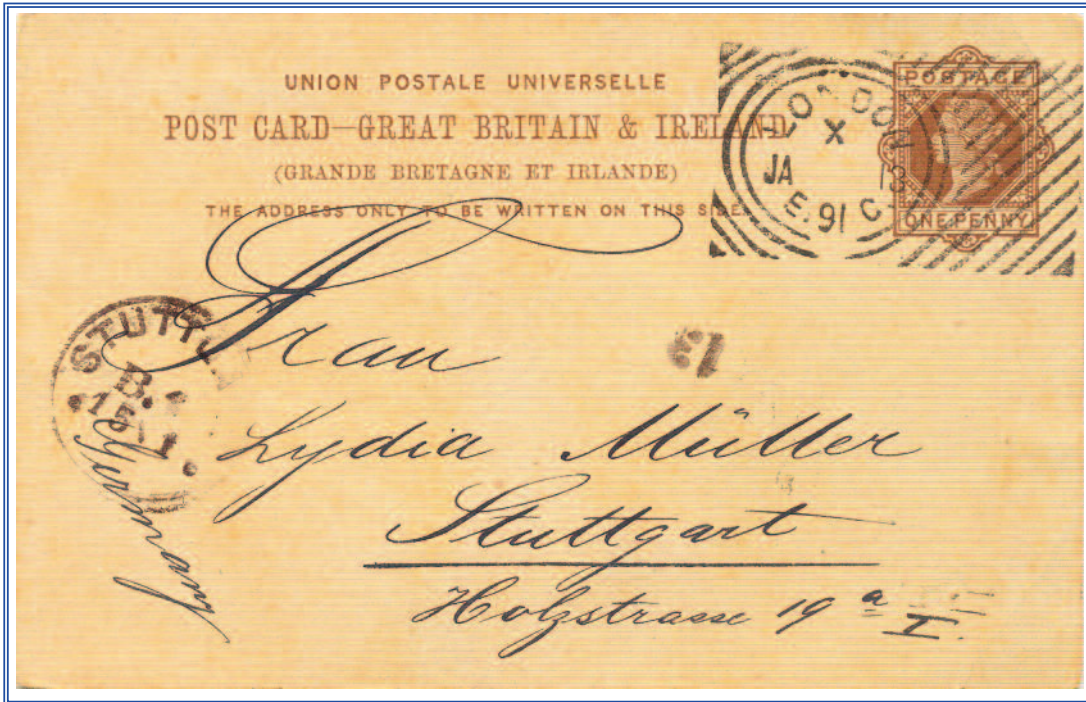 UNION POSTALE UNIVERSELLE
POST CARD—GREAT BRITAIN & IRELAND
(GRANDE BRETAGNE ET IRLANDE)
THE ADDRESS ONLY TO BE WRITTEN ON THIS SIDE
POSTAGE
ONE PENNY
LONDON
X
JA 13
91
E.C
Frau
Lydia Müller
Stuttgart
Holzstrasse 19 a I.
Germany
B.
15 1
13